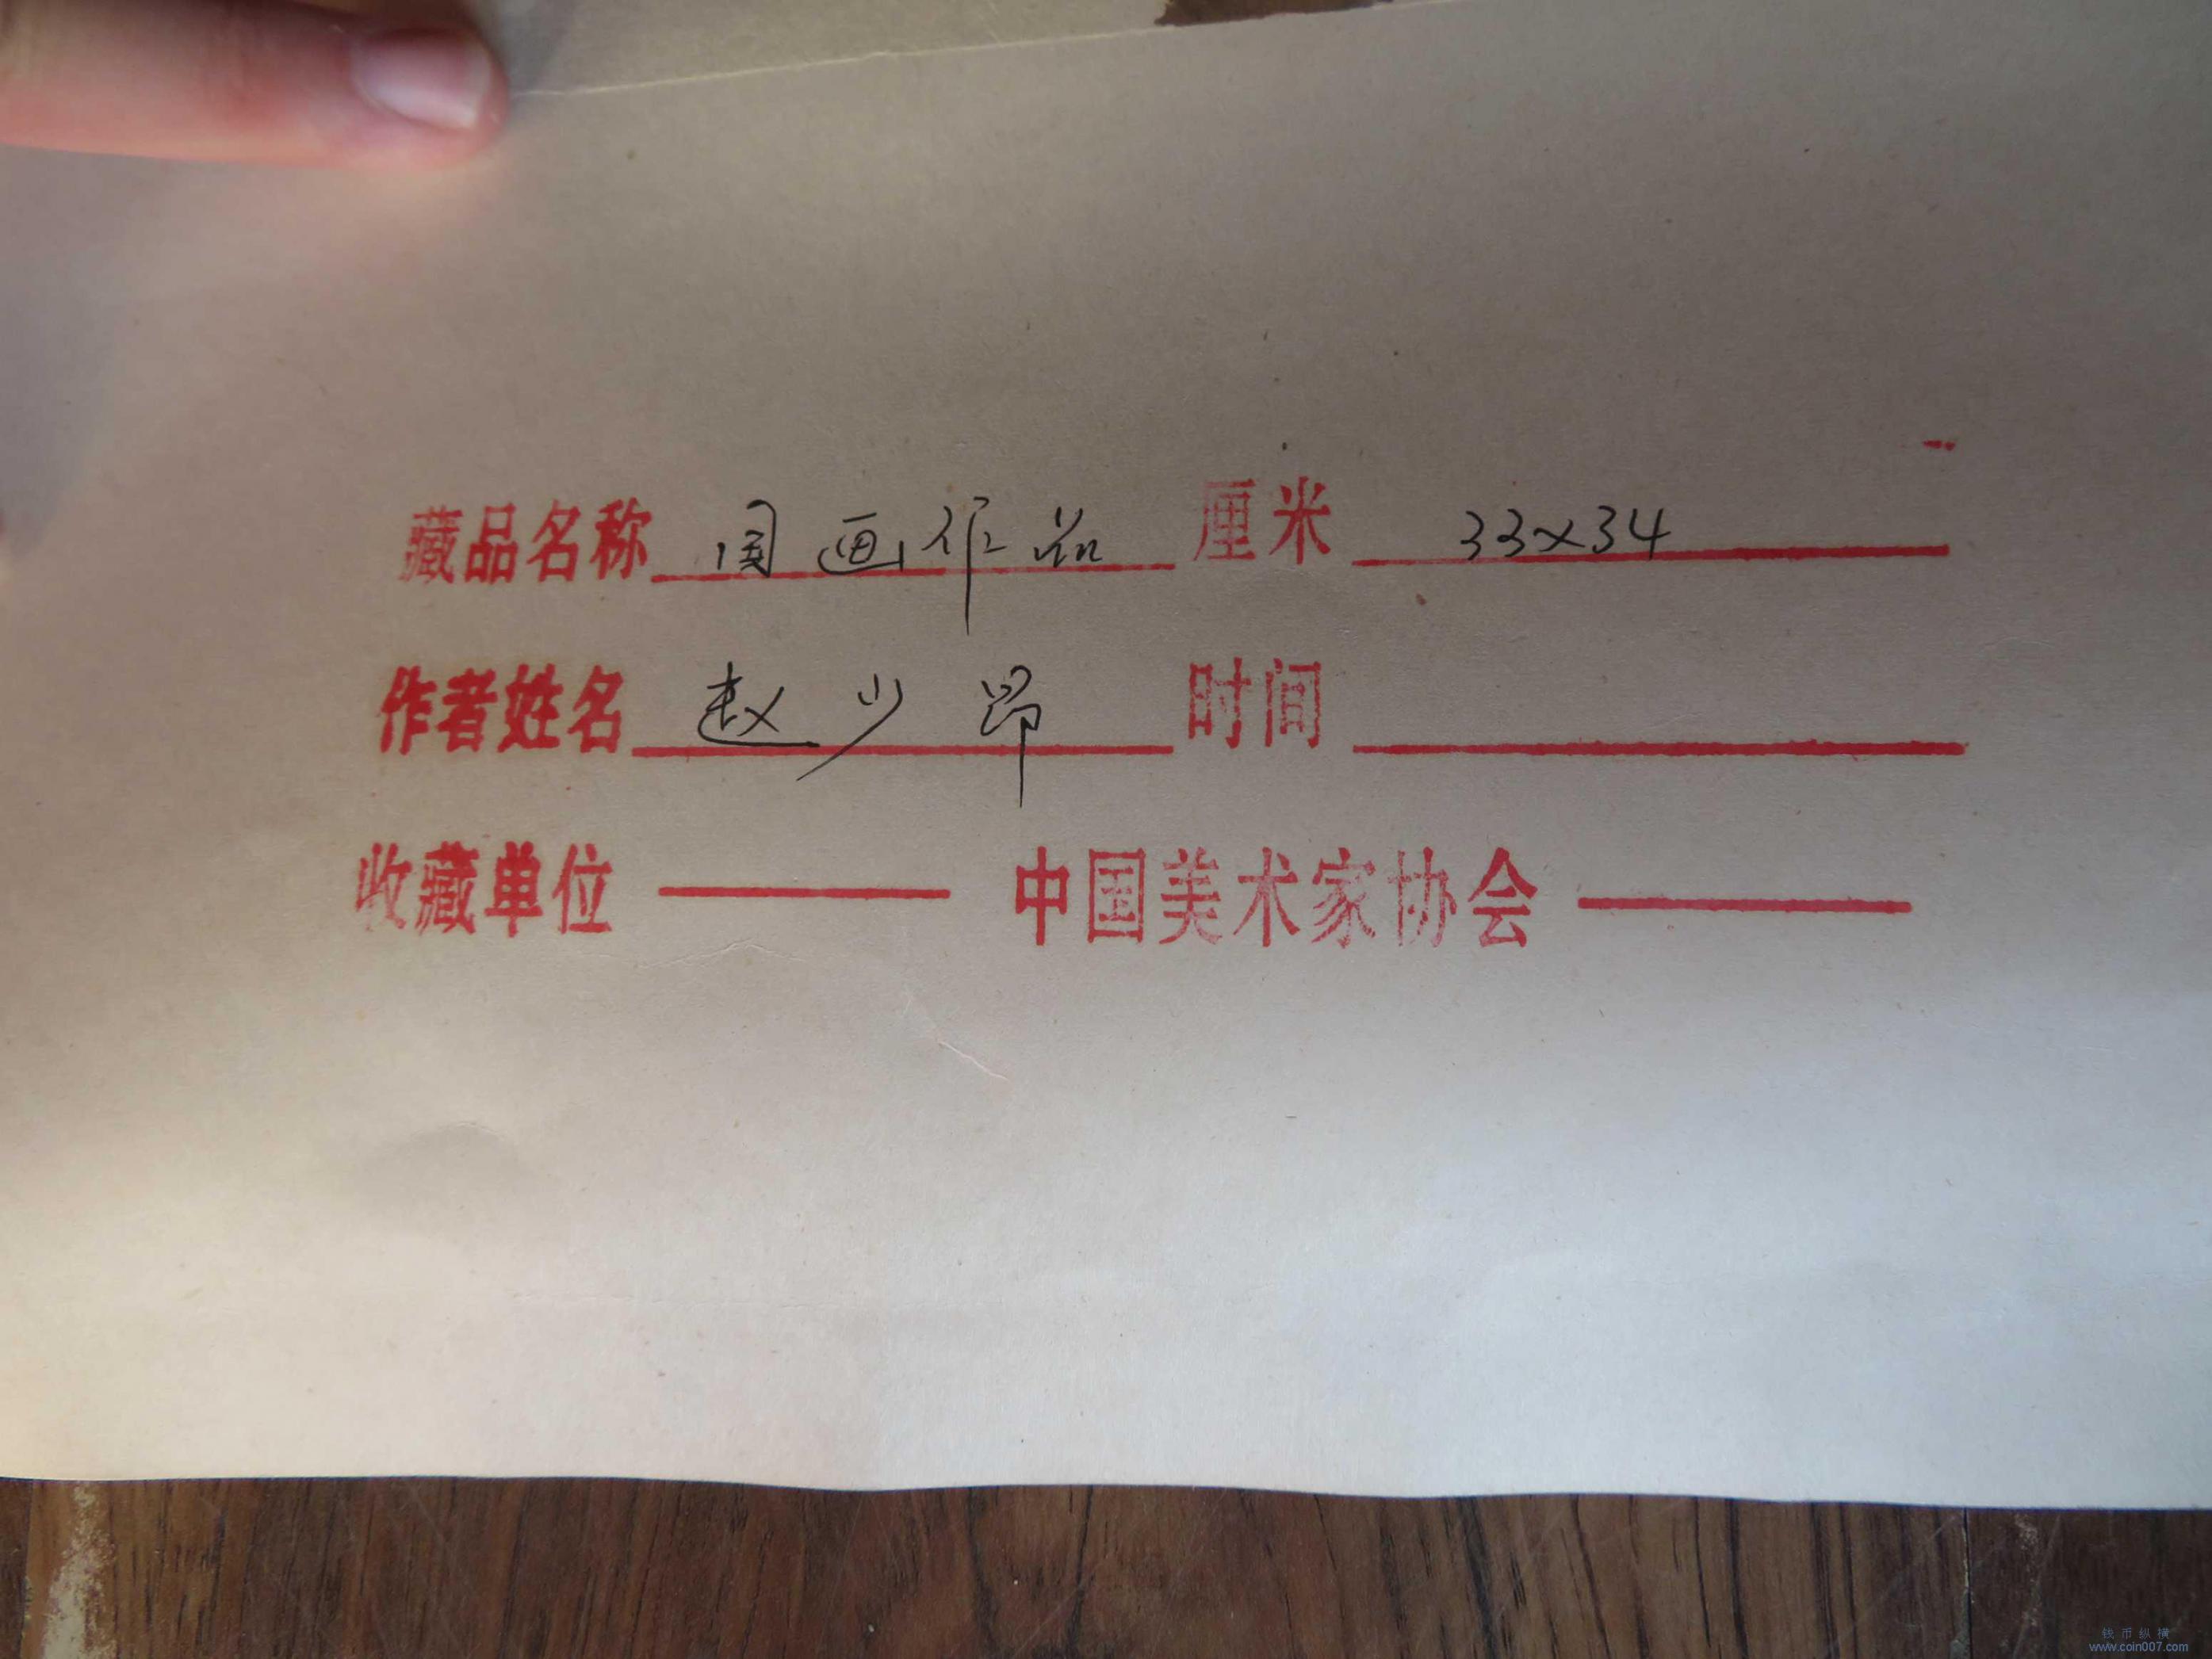 藏品名称 国画作品 厘米 33×34
作者姓名 赵少昂 时间
收藏单位 —— 中国美术家协会 ——
钱币纵横
www.coin007.com